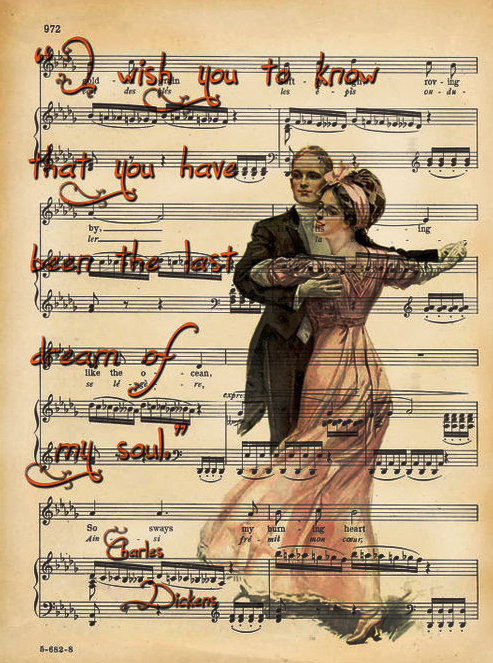 972
"I wish you to know
gold - grain rov - ing
des blés les é - pis on - du -
that you have
by, ing
ler la
been the last
dream of
like the o - cean,
se lé - gè - re,
my soul."
So sways my burn - ing heart
Ain - si fré - mit mon cœur,
Charles
Dickens
5-682-8